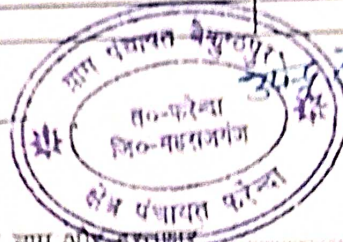 ग्राम पंचायत बैकुण्ठपुर
त०-फरेन्दा
जि०-महराजगंज
क्षेत्र पंचायत फरेन्दा